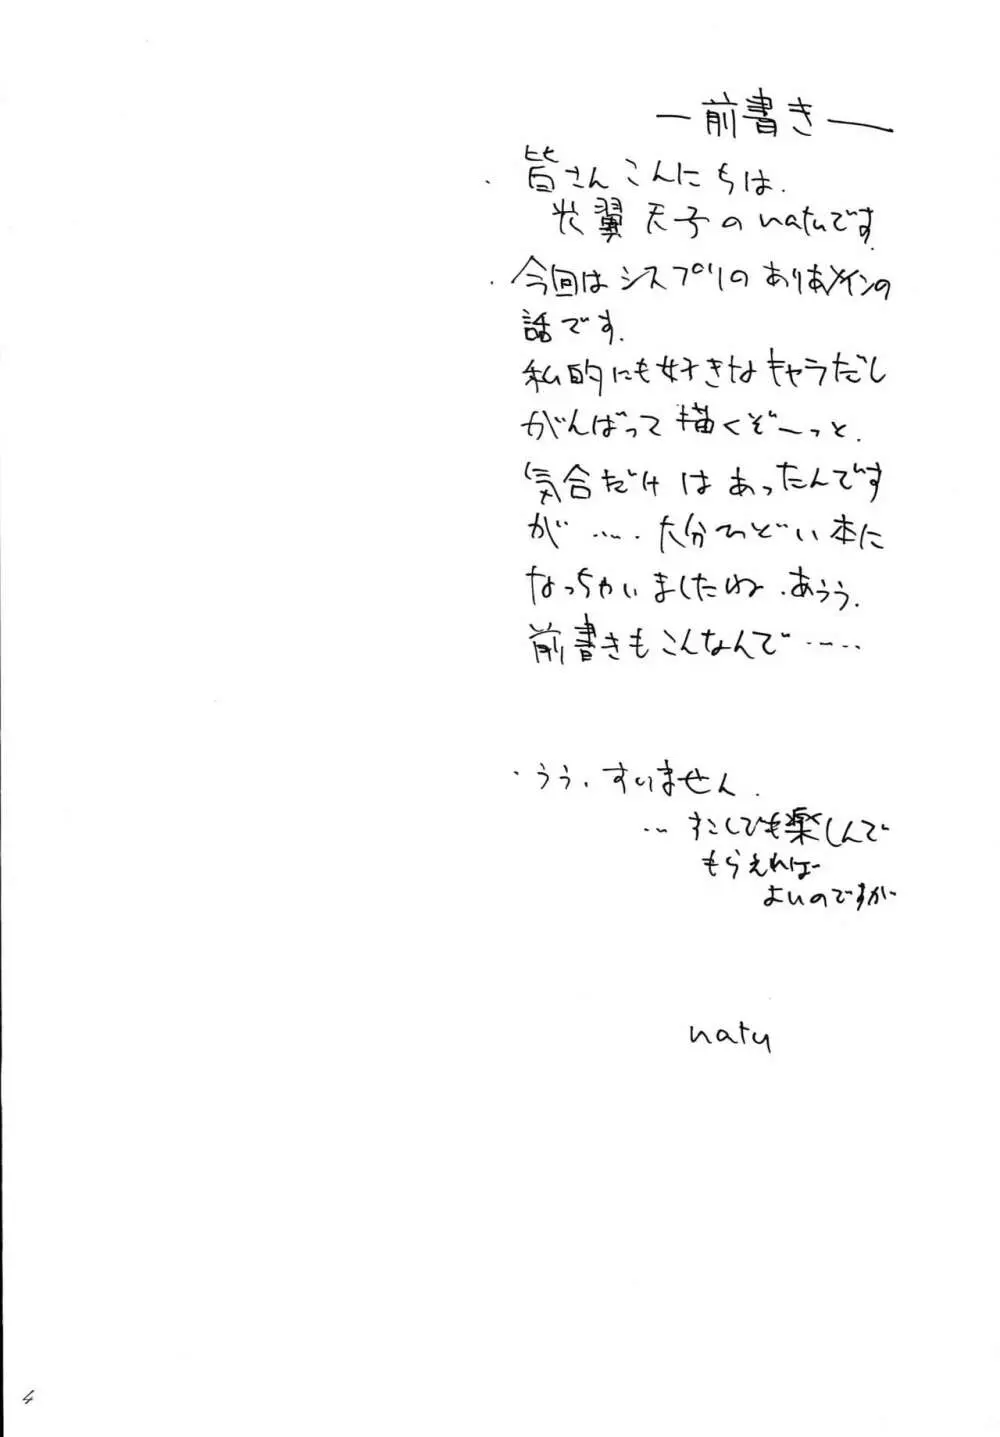 ー前書きー
・皆さんこんにちは.
光翼天子のnatuです.
・今回はシスプリのありあメインの
話です.
私的にも好きなキャラだし
がんばって描くぞーっと.
気合だけはあったんです
が……大分ひどい本に
なっちゃいましたね.あうう.
前書きもこんなんで……
・うう、すいません.
…すこしでも楽しんで
もらえれば
よいのですが
natu
4